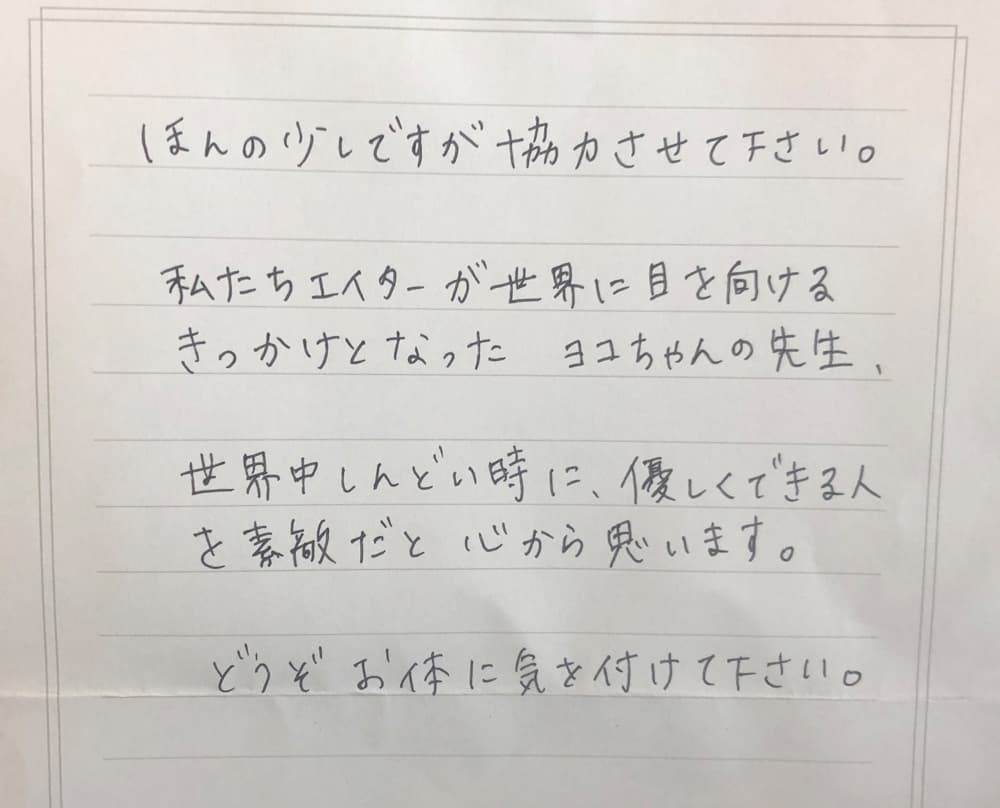 ほんの少しですが協力させて下さい。
私たちエイターが世界に目を向ける
きっかけとなった ヨコちゃんの先生、
世界中しんどい時に、優しくできる人
を素敵だと 心から思います。
どうぞ お体に気を付けて下さい。